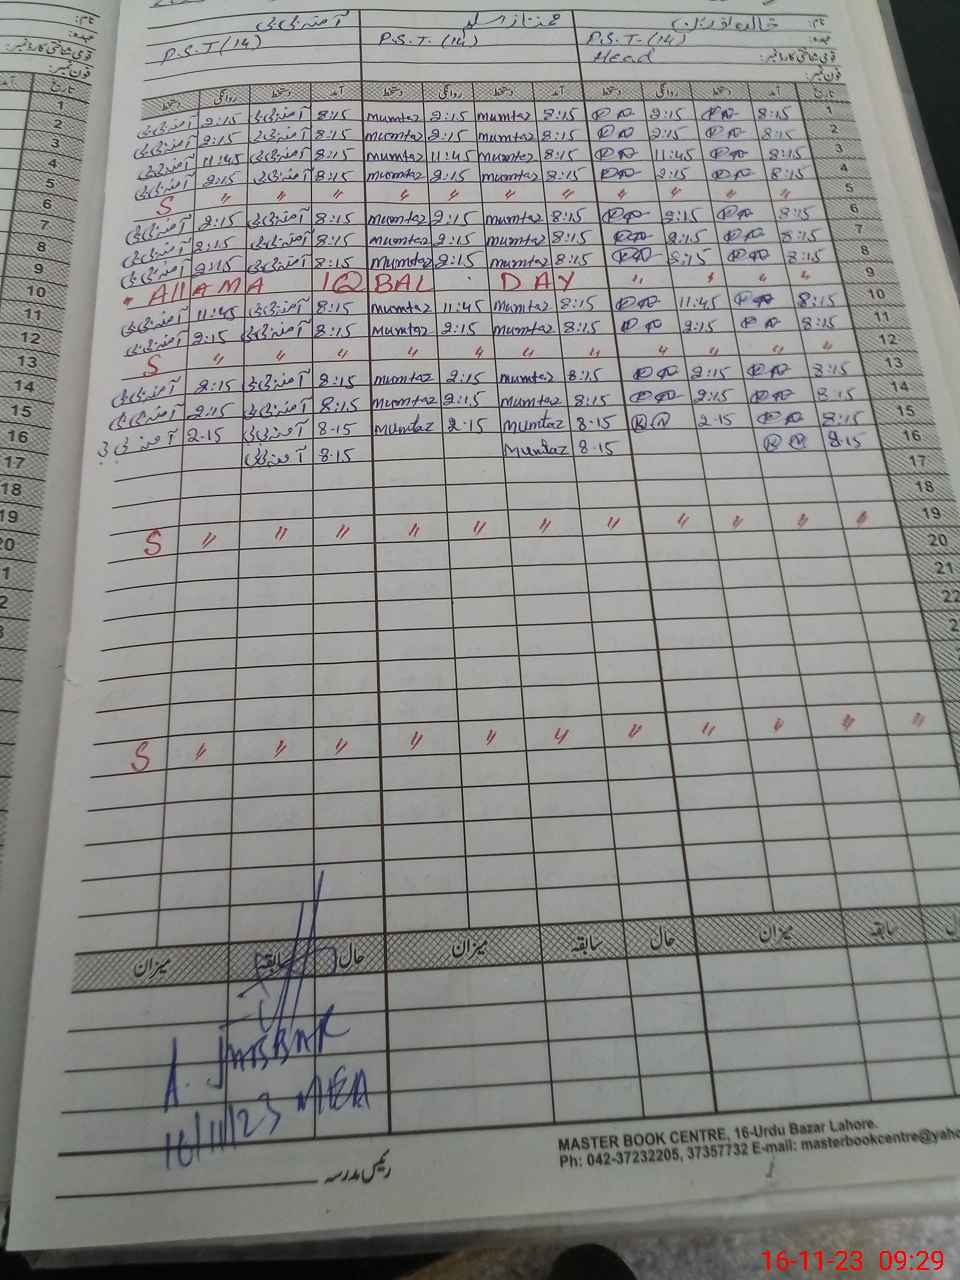 نام: خالدہ نورین ممتاز اسلم آمنہ بی بی
عہدہ: P.S.T (14) P.S.T. (14) P.S.T (14)
قومی شناختی کارڈ نمبر: Head
فون نمبر:
تاریخ آمد دستخط روانگی دستخط آمد دستخط روانگی دستخط آمد دستخط روانگی دستخط
1 8:15 2:15 8:15 mumtaz 2:15 mumtaz 8:15 آمنہ بی بی 2:15 آمنہ بی بی
2 8:15 2:15 8:15 mumtaz 2:15 mumtaz 8:15 آمنہ بی بی 2:15 آمنہ بی بی
3 8:15 11:45 8:15 mumtaz 11:45 mumtaz 8:15 آمنہ بی بی 11:45 آمنہ بی بی
4 8:15 2:15 8:15 mumtaz 2:15 mumtaz 8:15 آمنہ بی بی 2:15 آمنہ بی بی
5 S " " " " " " " " " " "
6 8:15 2:15 8:15 mumtaz 2:15 mumtaz 8:15 آمنہ بی بی 2:15 آمنہ بی بی
7 8:15 2:15 8:15 mumtaz 2:15 mumtaz 8:15 آمنہ بی بی 2:15 آمنہ بی بی
8 8:15 2:15 8:15 mumtaz 2:15 mumtaz 8:15 آمنہ بی بی 2:15 آمنہ بی بی
9 " AllAMA IQBAL DAY " " " "
10 8:15 11:45 8:15 mumtaz 11:45 mumtaz 8:15 آمنہ بی بی 11:45 آمنہ بی بی
11 8:15 2:15 8:15 mumtaz 2:15 mumtaz 8:15 آمنہ بی بی 2:15 آمنہ بی بی
12 S " " " " " " " " " " "
13 8:15 2:15 8:15 mumtaz 2:15 mumtaz 8:15 آمنہ بی بی 2:15 آمنہ بی بی
14 8:15 2:15 8:15 mumtaz 2:15 mumtaz 8:15 آمنہ بی بی 2:15 آمنہ بی بی
15 8:15 2-15 8-15 mumtaz 2-15 mumtaz 8-15 آمنہ بی بی 2-15 آمنہ بی بی
16 8-15 8-15 mumtaz 8-15 آمنہ بی بی
17
18
19 S " " " " " " " " " " "
20
21
22
S " " " " " " " " " " "
سابقہ میزان حال سابقہ میزان حال سابقہ میزان
16/11/23 AEA
رئیس مدرسہ
MASTER BOOK CENTRE, 16-Urdu Bazar Lahore.
Ph: 042-37232205, 37357732 E-mail: masterbookcentre@yaho
16-11-23 09:29